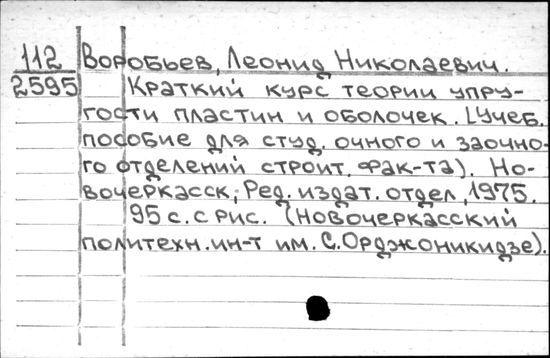 112 Воробьев, Леонид Николаевич.
2595 Краткий курс теории упру-
гости пластин и оболочек. [Учеб.
пособие для студ. очного и заочно-
го отделений строит. фак-та). Но-
вочеркасск; Ред. издат. отдел, 1975.
95 с. с рис. (Новочеркасский
политехн. ин-т им. С. Орджоникидзе).